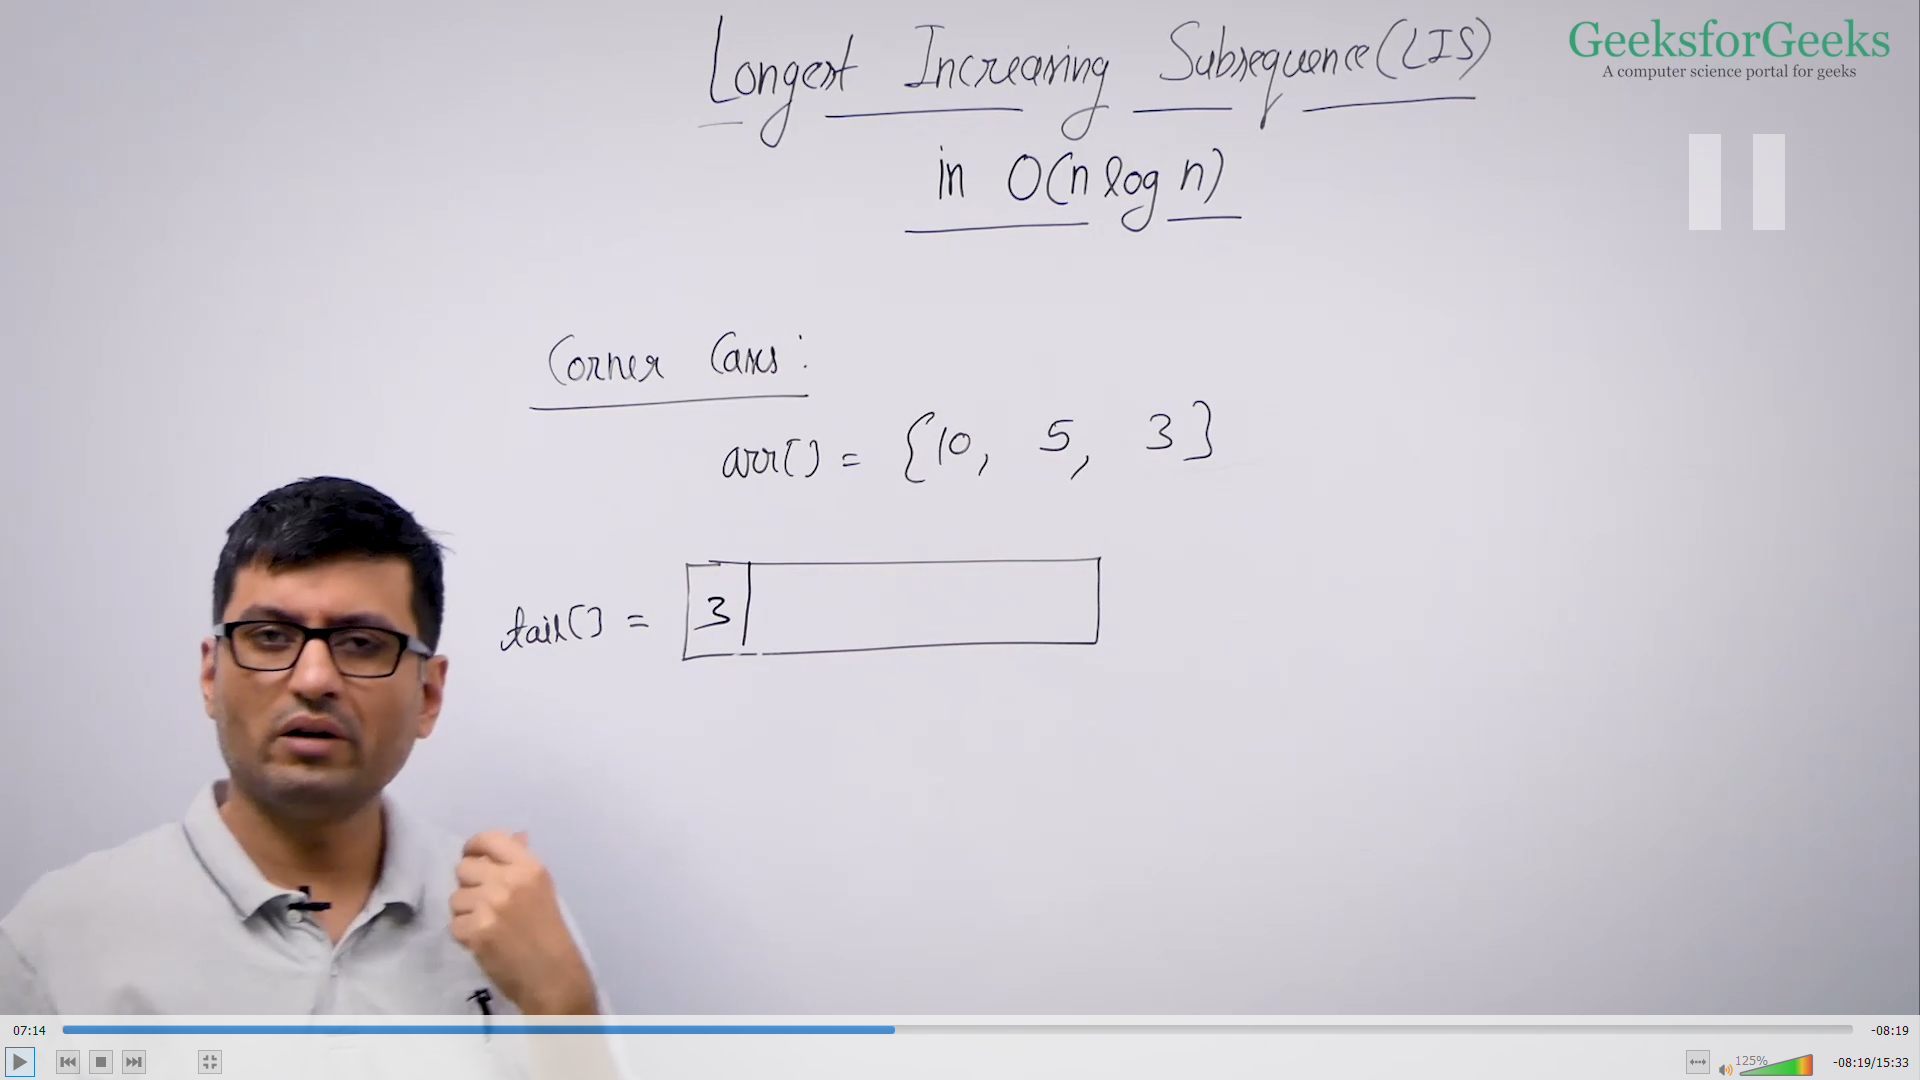 Longest Increasing Subsequence (LIS)
in O(n log n)
GeeksforGeeks
A computer science portal for geeks
Corner Cases:
arr[] = {10, 5, 3}
tail[] = 3
07:14
-08:19
125%
-08:19/15:33